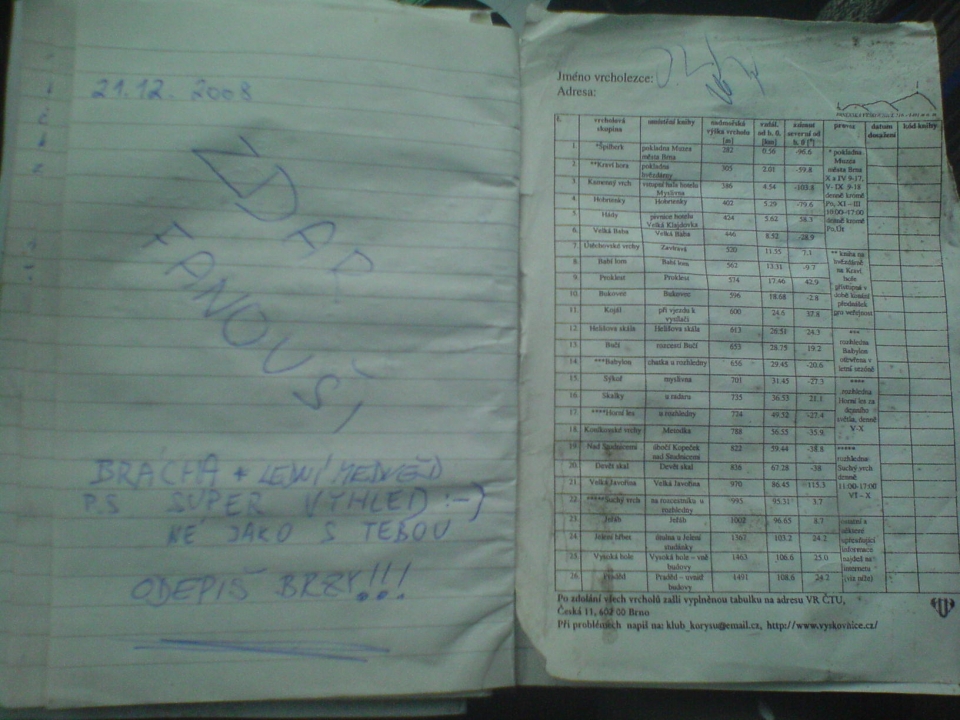 21.12. 2008
ZDAR
FANOUŠI
BRACHA + LEDNÍ MEDVĚD
P.S SUPER VÝHLED :-)
NE JAKO S TEBOU
ODEPIŠ BRZY!!!
Jméno vrcholezce:
Adresa:
č. vrcholová skupina umístění knihy nadmořská výška vrcholu [m] vzdál. od b. 0. [km] azimut severní od b. 0 [°] pozn. datum dosažení kód knihy
1 *Špilberk pokladna Muzea města Brna 282 0.56 -96.6
2 **Kraví hora pokladna hvězdárny 305 2.01 -59.8
3. Kamenný vrch vstupní hala hotelu Myslivna 386 4.54 -103.8
4. Hobrtenky Hobrtenky 402 5.29 -79.6
5 Hády pivnice hotelu Velká Klajdovka 424 5.62 58.3
6. Velká Baba Velká Baba 446 8.52 -28.9
7. Útěchovské vrchy Zavíravá 520 11.55 7.1
8. Babí lom Babí lom 562 13.31 -9.7
9. Proklest Proklest 574 17.46 42.9
10. Bukovec Bukovec 596 18.68 -2.8
11. Kojál při vjezdu k vysílači 600 24.6
12. Helišova skála Helišova skála 613 26.51 24.3
13. Bučí rozcestí Bučí 653 28.75 19.2
14. ***Babylon chatka u rozhledny 656 29.45 -20.6
15 Sýkoř myslivna 701 31.45 -27.3
16 Skalky u radaru 735 36.53 21.1
17. ****Horní les u rozhledny 774 49.52 -27.4
18. 788 56.55 -35.9
19. Nad Studnicemi úbočí Kopeček nad Studnicemi 822 59.44 -38.8
20. Devět skal Devět skal 836 67.28 -38
21. Velká Javořina Velká Javořina 970 86.45 115.3
22. *****Suchý vrch na rozcestníku u rozhledny 995 95.31 3.7
23. Jeřáb Jeřáb 1002 96.65 8.7
24. Jelení hřbet u Jelení studánky 1367 103.2 24.2
25. Vysoká hole Vysoká hole – vně budovy 1463 106.6 25.0
26. Praděd Praděd – uvnitř budovy 1491 108.6 24.2
* pokladna Muzea města Brna X a IV 9-17, V- IX 9-18 denně kromě Po, XI – III 10:00-17:00 denně kromě Po,Út
** kniha na hvězdárně na Kraví hoře přístupná v době konání přednášek pro veřejnost
*** rozhledna Babylon otevřena v letní sezóně
**** rozhledna Horní les za denního světla, denně V-X
***** rozhledna Suchý vrch denně 11:00-17:00 VI – X
informace najdeš na internetu (viz níže)
Po zdolání všech vrcholů zašli vyplněnou tabulku na adresu VR ČTU,
Česká 11, 602 00 Brno
Při problémech napiš na: klub_korysu@email.cz, http://www.vyskovnice.cz/